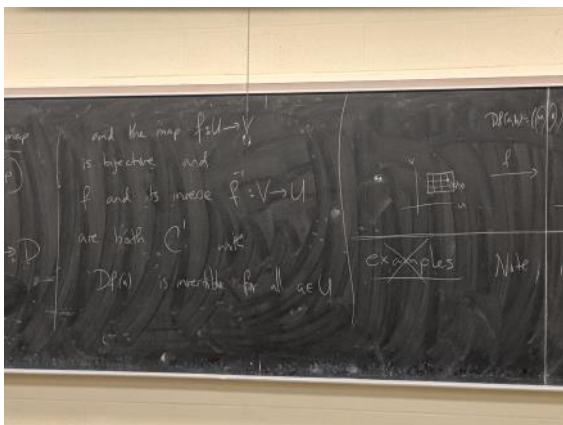 map
and the map f: U → V
is bijective and
f and its inverse f⁻¹ : V → U
are both C¹ 
Df(a) is invertible for all a ∈ U
→ D
V
u
f
examples
Note